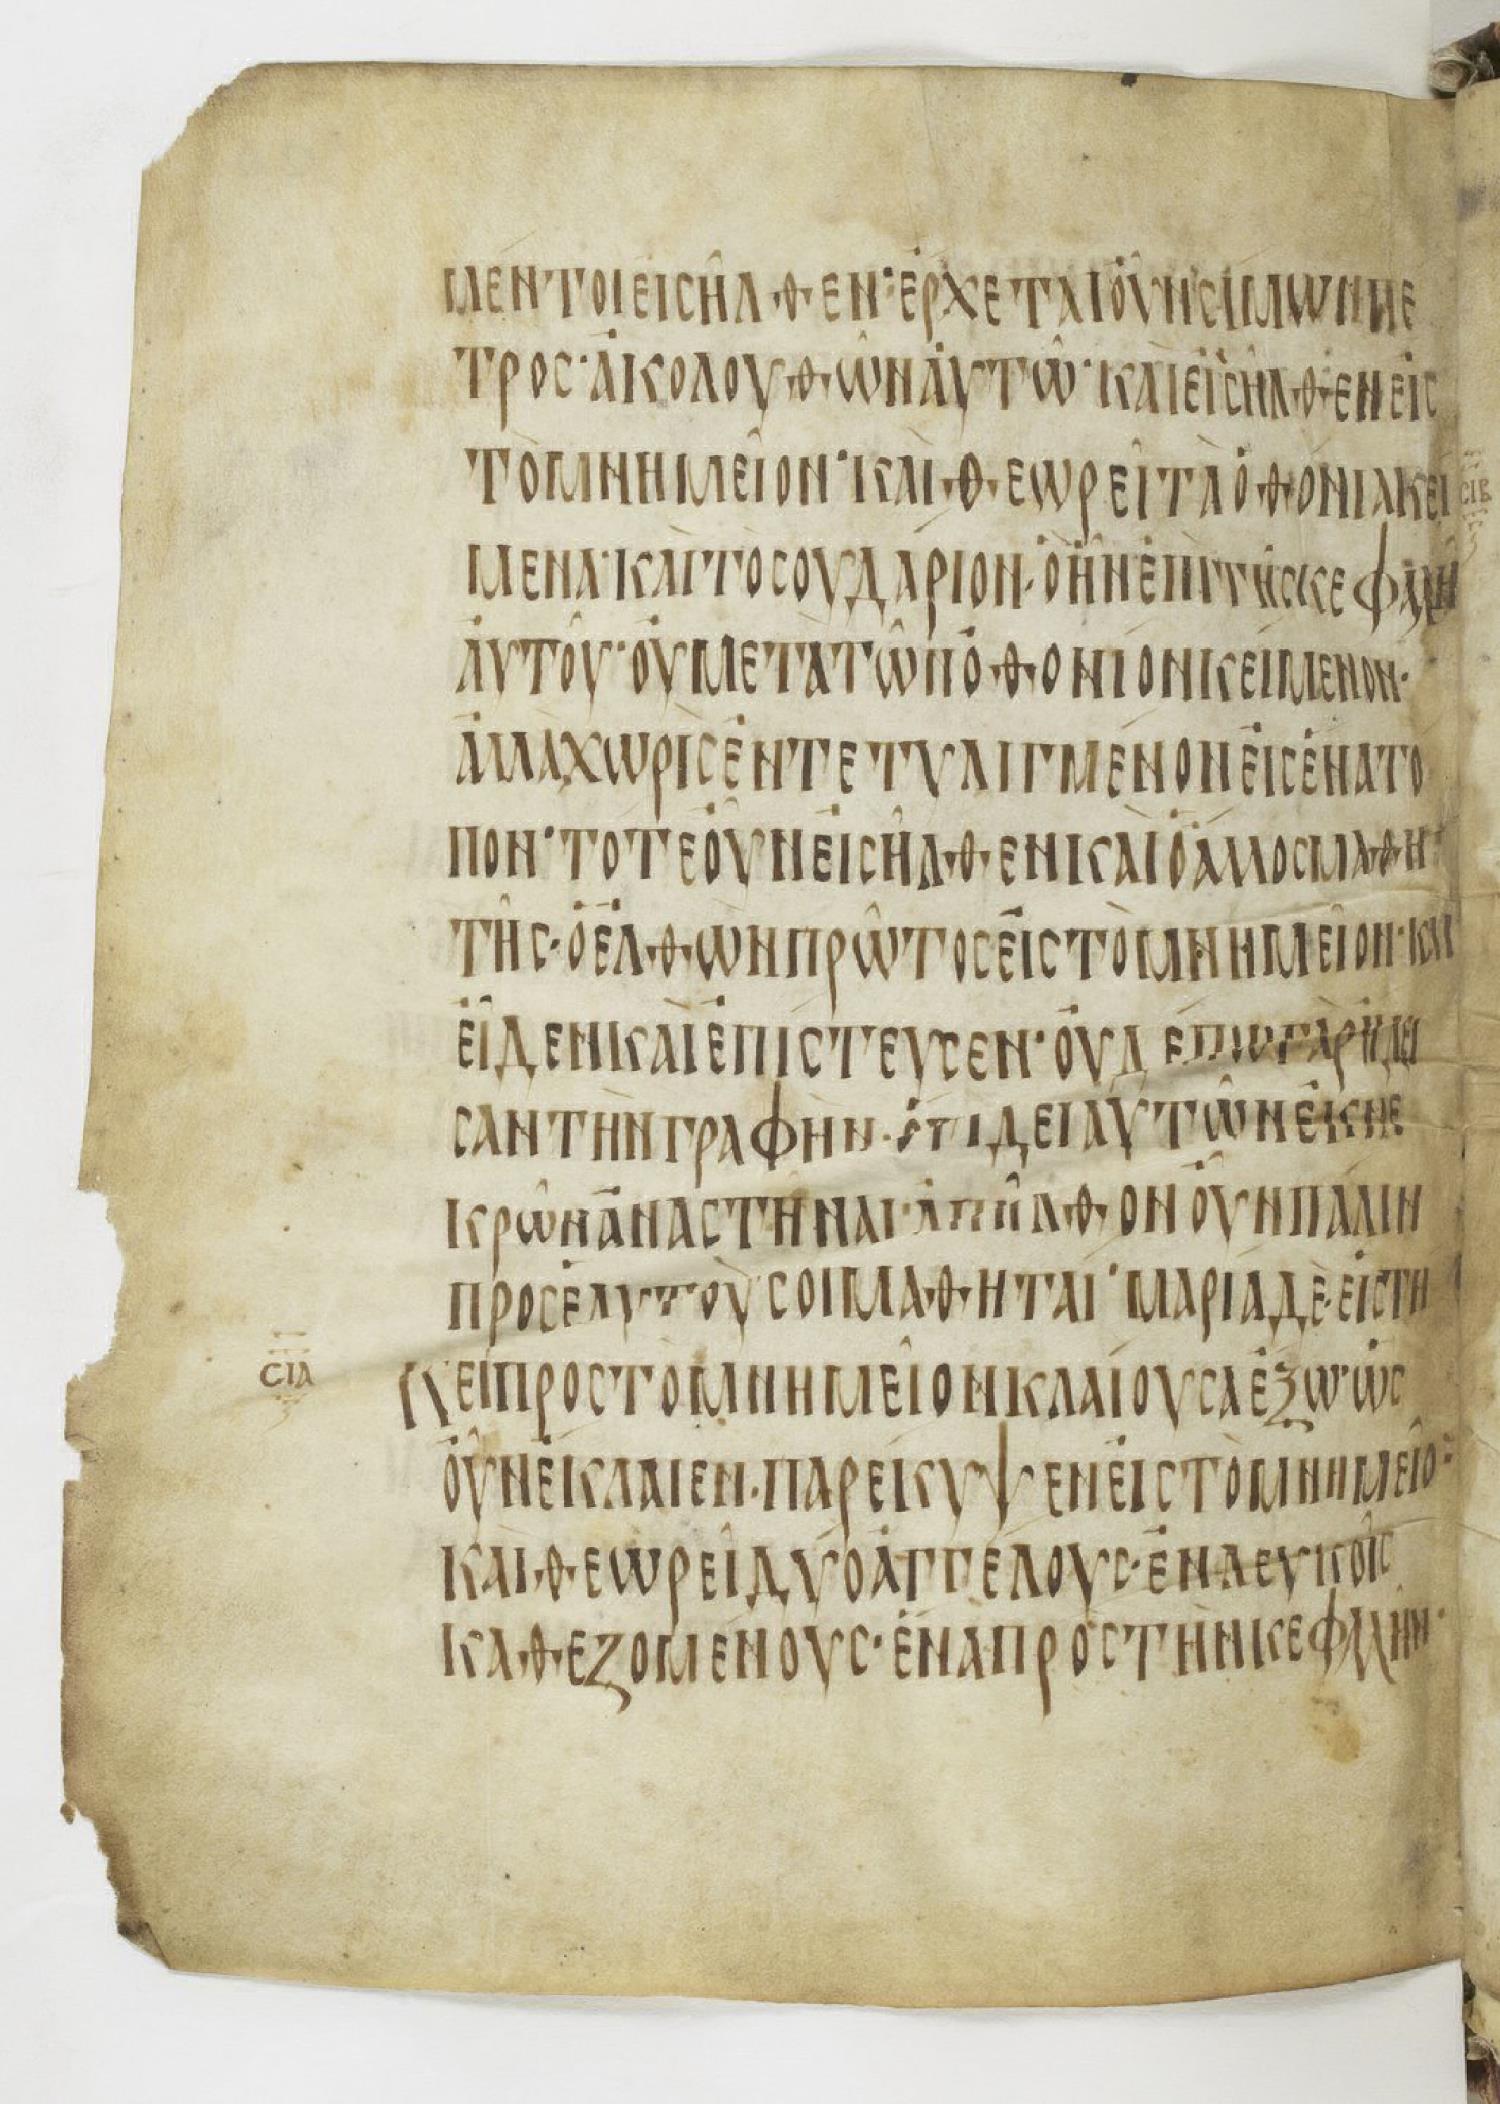 ΜΕΝΤΟΙ ΕἸΣΗ͂ΛΘΕΝ· ἘΡΧΕΤΑΙ ΟΥ̓͂Ν ΣΙΜΩΝ ΠΕ
ΤΡΟΣ· ἈΚΟΛΟΥΘΩ͂Ν ἈΥΤΩ͂· ΚΑῚ ΕἸΣΗ͂ΛΘΕΝ ΕἸΣ
ΤῸ ΜΝΗΜΕΙ͂ΟΝ· ΚΑῚ ΘΕΩΡΕΙ͂ ΤᾺ ὈΘΟΝΙΑ ΚΕΙ
ΜΕΝΑ· ΚΑῚ ΤΟ ΣΟΥΔΑΡΙΟΝ· Ὃ Ἦ͂Ν ἘΠῚ ΤΗ͂Σ ΚΕΦΑΛΗ
ἈΥΤΟΥ͂· ΟΥ̓ ΜΕΤᾺ ΤΩ͂Ν ὈΘΟΝΙΟΝ ΚΕΙΜΕΝΟΝ·
ἈΛΛᾺ ΧΩΡῚΣ ἘΝΤΕΤΥΛΙΓΜΕΝΟΝ ΕἸΣ ἝΝΑ ΤΟ
ΠΟΝ· ΤΟΤΕ ΟΥ̓͂Ν ΕἸΣΗ͂ΛΘΕΝ ΚΑῚ Ὁ ἌΛΛΟΣ ΜΑΘΗ
ΤΗ͂Σ· Ὁ ἘΛΘΩΝ ΠΡΩ͂ΤΟΣ ΕἸΣ ΤῸ ΜΝΗΜΕΙ͂ΟΝ· ΚΑΙ
ΕἾΔΕΝ ΚΑῚ ἘΠΙΣΤΕΥΣΕΝ· ΟΥ̓ΔΕΠΩ ΓᾺΡ ΗΔΕΙ
ΣΑΝ ΤῊΝ ΓΡΑΦΗΝ· ὉΤΙ ΔΕΙ ΑΥΤΩ͂Ν ἘΚ ΝΕ
ΚΡΩ͂Ν ἈΝΑΣΤΗ͂ΝΑΙ· ἈΠΗ͂ΛΘΟΝ ΟΥ̓͂Ν ΠΑΛΙΝ
ΠΡΟΣ ἙΑΥΤΟῪΣ ΟΙ ΜΑΘΗΤΑΙ· ΜΑΡΙΑ ΔῈ· ΕἸΣΤΗ
ΣΙΑ
ΚΕΙ ΠΡΟΣ ΤΟ ΜΝΗΜΕΙ͂ΟΝ ΚΛΑΙΟΥΣΑ ἘΞΩ· ὩΣ
ΟΥ̓͂Ν ἘΚΛΑΙΕΝ· ΠΑΡΕΚΥΨΕΝ ΕἸΣ ΤῸ ΜΝΗΜΕΙ͂Ο
ΚΑῚ ΘΕΩΡΕΙ͂ ΔΥΟ ἈΓΓΕΛΟΥΣ· ἘΝ ΛΕΥΚΟΙ͂Σ
ΚΑΘΕΖΟΜΕΝΟΥΣ· ἝΝΑ ΠΡῸΣ ΤῊΝ ΚΕΦΑΛῊΝ·
ΣΙΒ